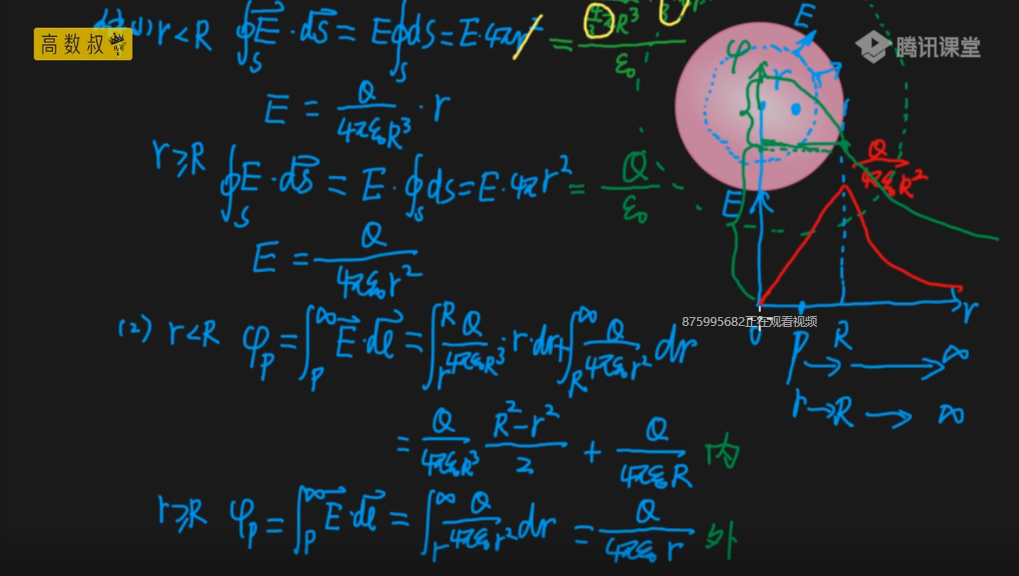 高数叔
腾讯课堂
(1) r<R ∮_S E⃗·dS⃗ = E∮_S dS = E·4πr² = R³ / ε₀
E = Q/(4πε₀R³) · r
r≥R ∮_S E⃗·dS⃗ = E·∮_S dS = E·4πr² = Q/ε₀
E = Q/(4πε₀r²)
(2) r<R φ_P = ∫_P^∞ E⃗·dl⃗ = ∫_r^R Q/(4πε₀R³)·r dr + ∫_R^∞ Q/(4πε₀r²) dr
= Q/(4πε₀R³) (R²-r²)/2 + Q/(4πε₀R) 内
r≥R φ_P = ∫_P^∞ E⃗·dl⃗ = ∫_r^∞ Q/(4πε₀r²) dr = Q/(4πε₀r) 外
E
φ
r
Q/(4πε₀R²)
E
r
875995682正在观看视频
0 P R
→ → ∞
r→R → ∞